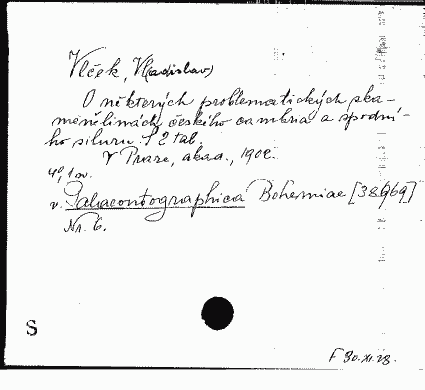 Vlček, Vl(adislav)
O některých problematických zka-
menělinách českého cambria a spodní-
ho siluru. S 2 tab.
V Praze, akad., 1902.
4°, 1 sv.
v. Palaeontographica Bohemiae [38969]
Nr. 6.
S
F 30.XI.28.